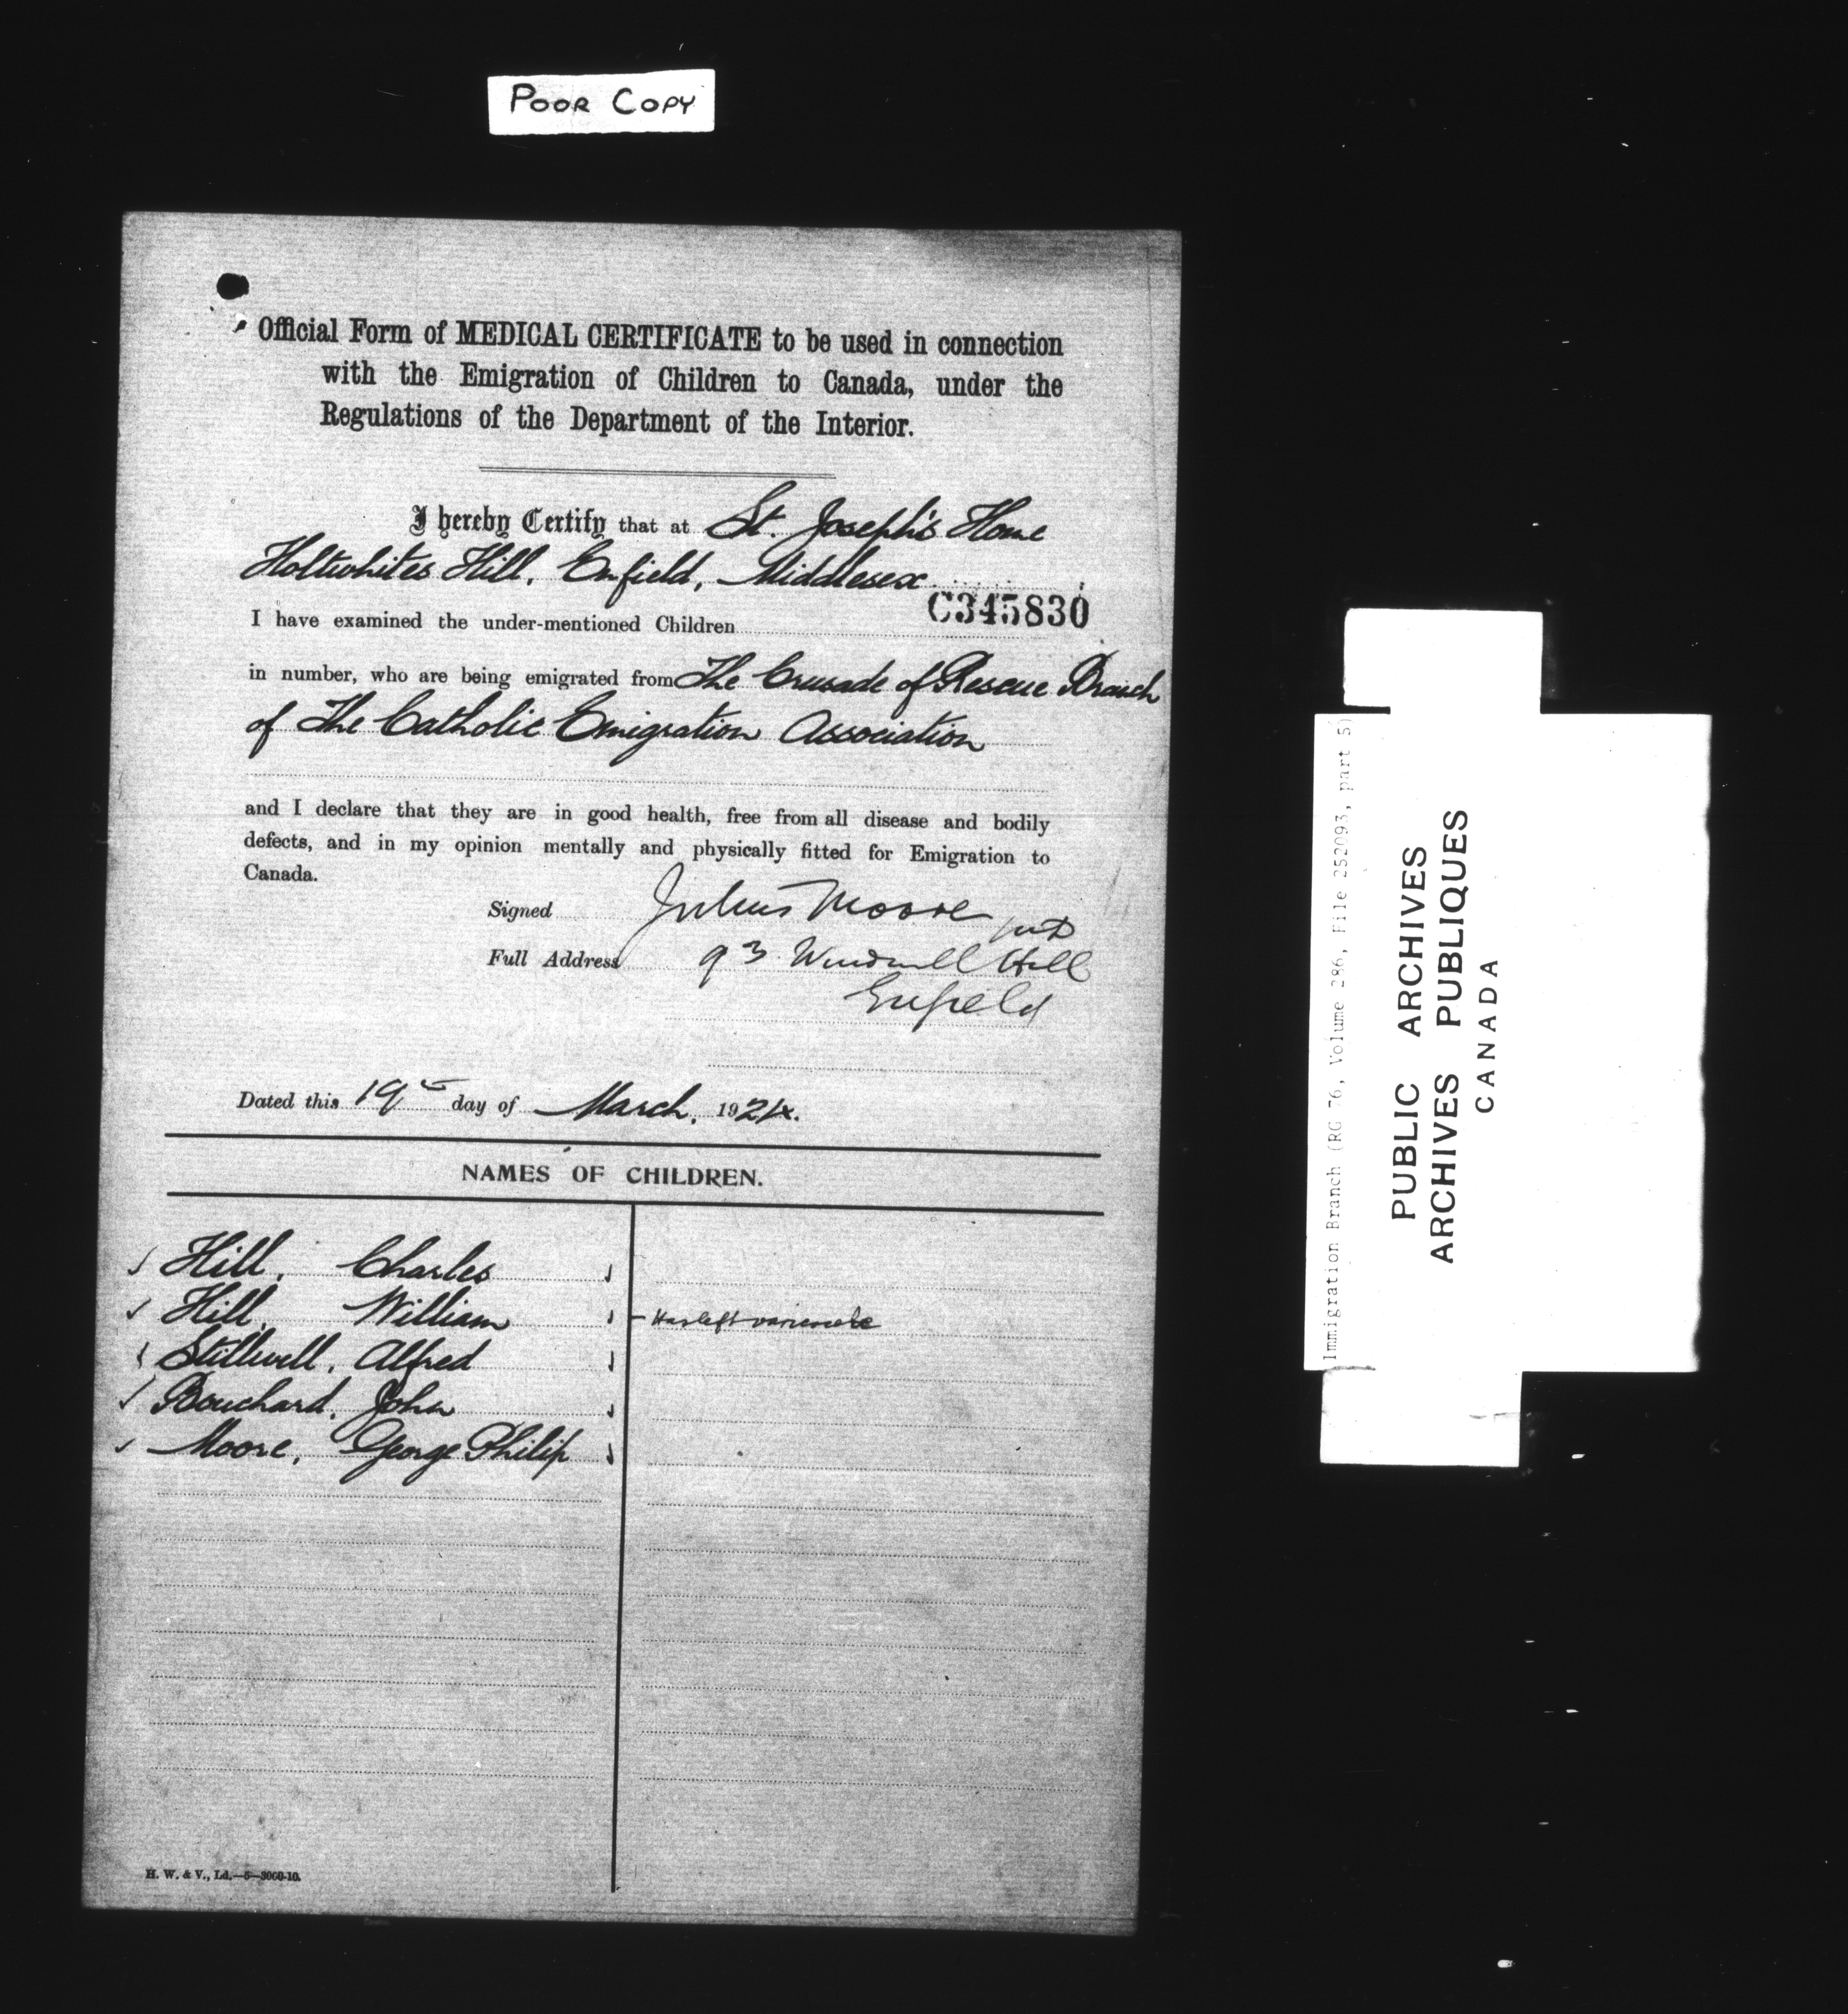 POOR COPY
Official Form of MEDICAL CERTIFICATE to be used in connection
with the Emigration of Children to Canada, under the
Regulations of the Department of the Interior.
I hereby Certify that at St. Joseph's Home
Holtwhites Hill, Enfield, Middlesex
C345830
I have examined the under-mentioned Children
in number, who are being emigrated from The Crusade of Rescue Branch
of The Catholic Emigration Association
and I declare that they are in good health, free from all disease and bodily
defects, and in my opinion mentally and physically fitted for Emigration to
Canada.
Signed Julius Moore MD
Full Address 93 Windmill Hill
Enfield
Dated this 19th day of March, 1924.
NAMES OF CHILDREN.
Hill, Charles
Hill, William - Has left varicocele
Stillwell, Alfred
Bouchard, John
Moore, George Philip
H. W. & V., Ld.—5—3000-10.
Immigration Branch (RG 76, Volume 286, File 252093, part 5)
PUBLIC ARCHIVES
ARCHIVES PUBLIQUES
CANADA